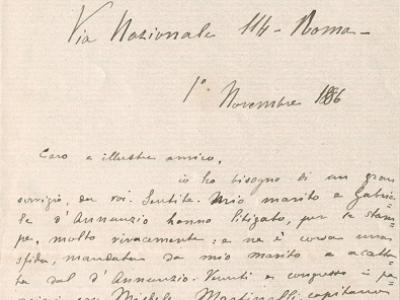 Via Nazionale 114 - Roma -
1° Novembre 1886
Caro e illustre amico,
io ho bisogno di un gran
servigio, da voi. Sentite. Mio marito e Gabrie-
le d'Annunzio hanno litigato, per le stam-
pe, molto vivacemente: e ne è corsa una
sfida, mandata da mio marito e accetta-
ta dal d'Annunzio. Venuti a congresso i pa-
drini, con Michele Martinelli, capitano